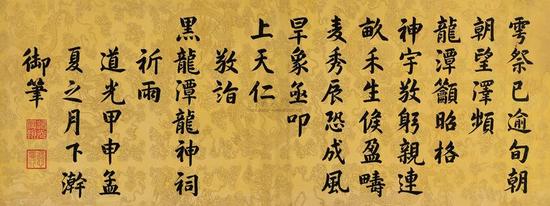 雩祭已逾旬朝
朝望澤頻
龍潭籲昭格
神宇敬躬親連
畝禾生俟盈疇
麦秀辰恐成風
旱象亟叩
上天仁
敬詣
黑龍潭龍神祠
祈雨
道光甲申孟
夏之月下澣
御筆